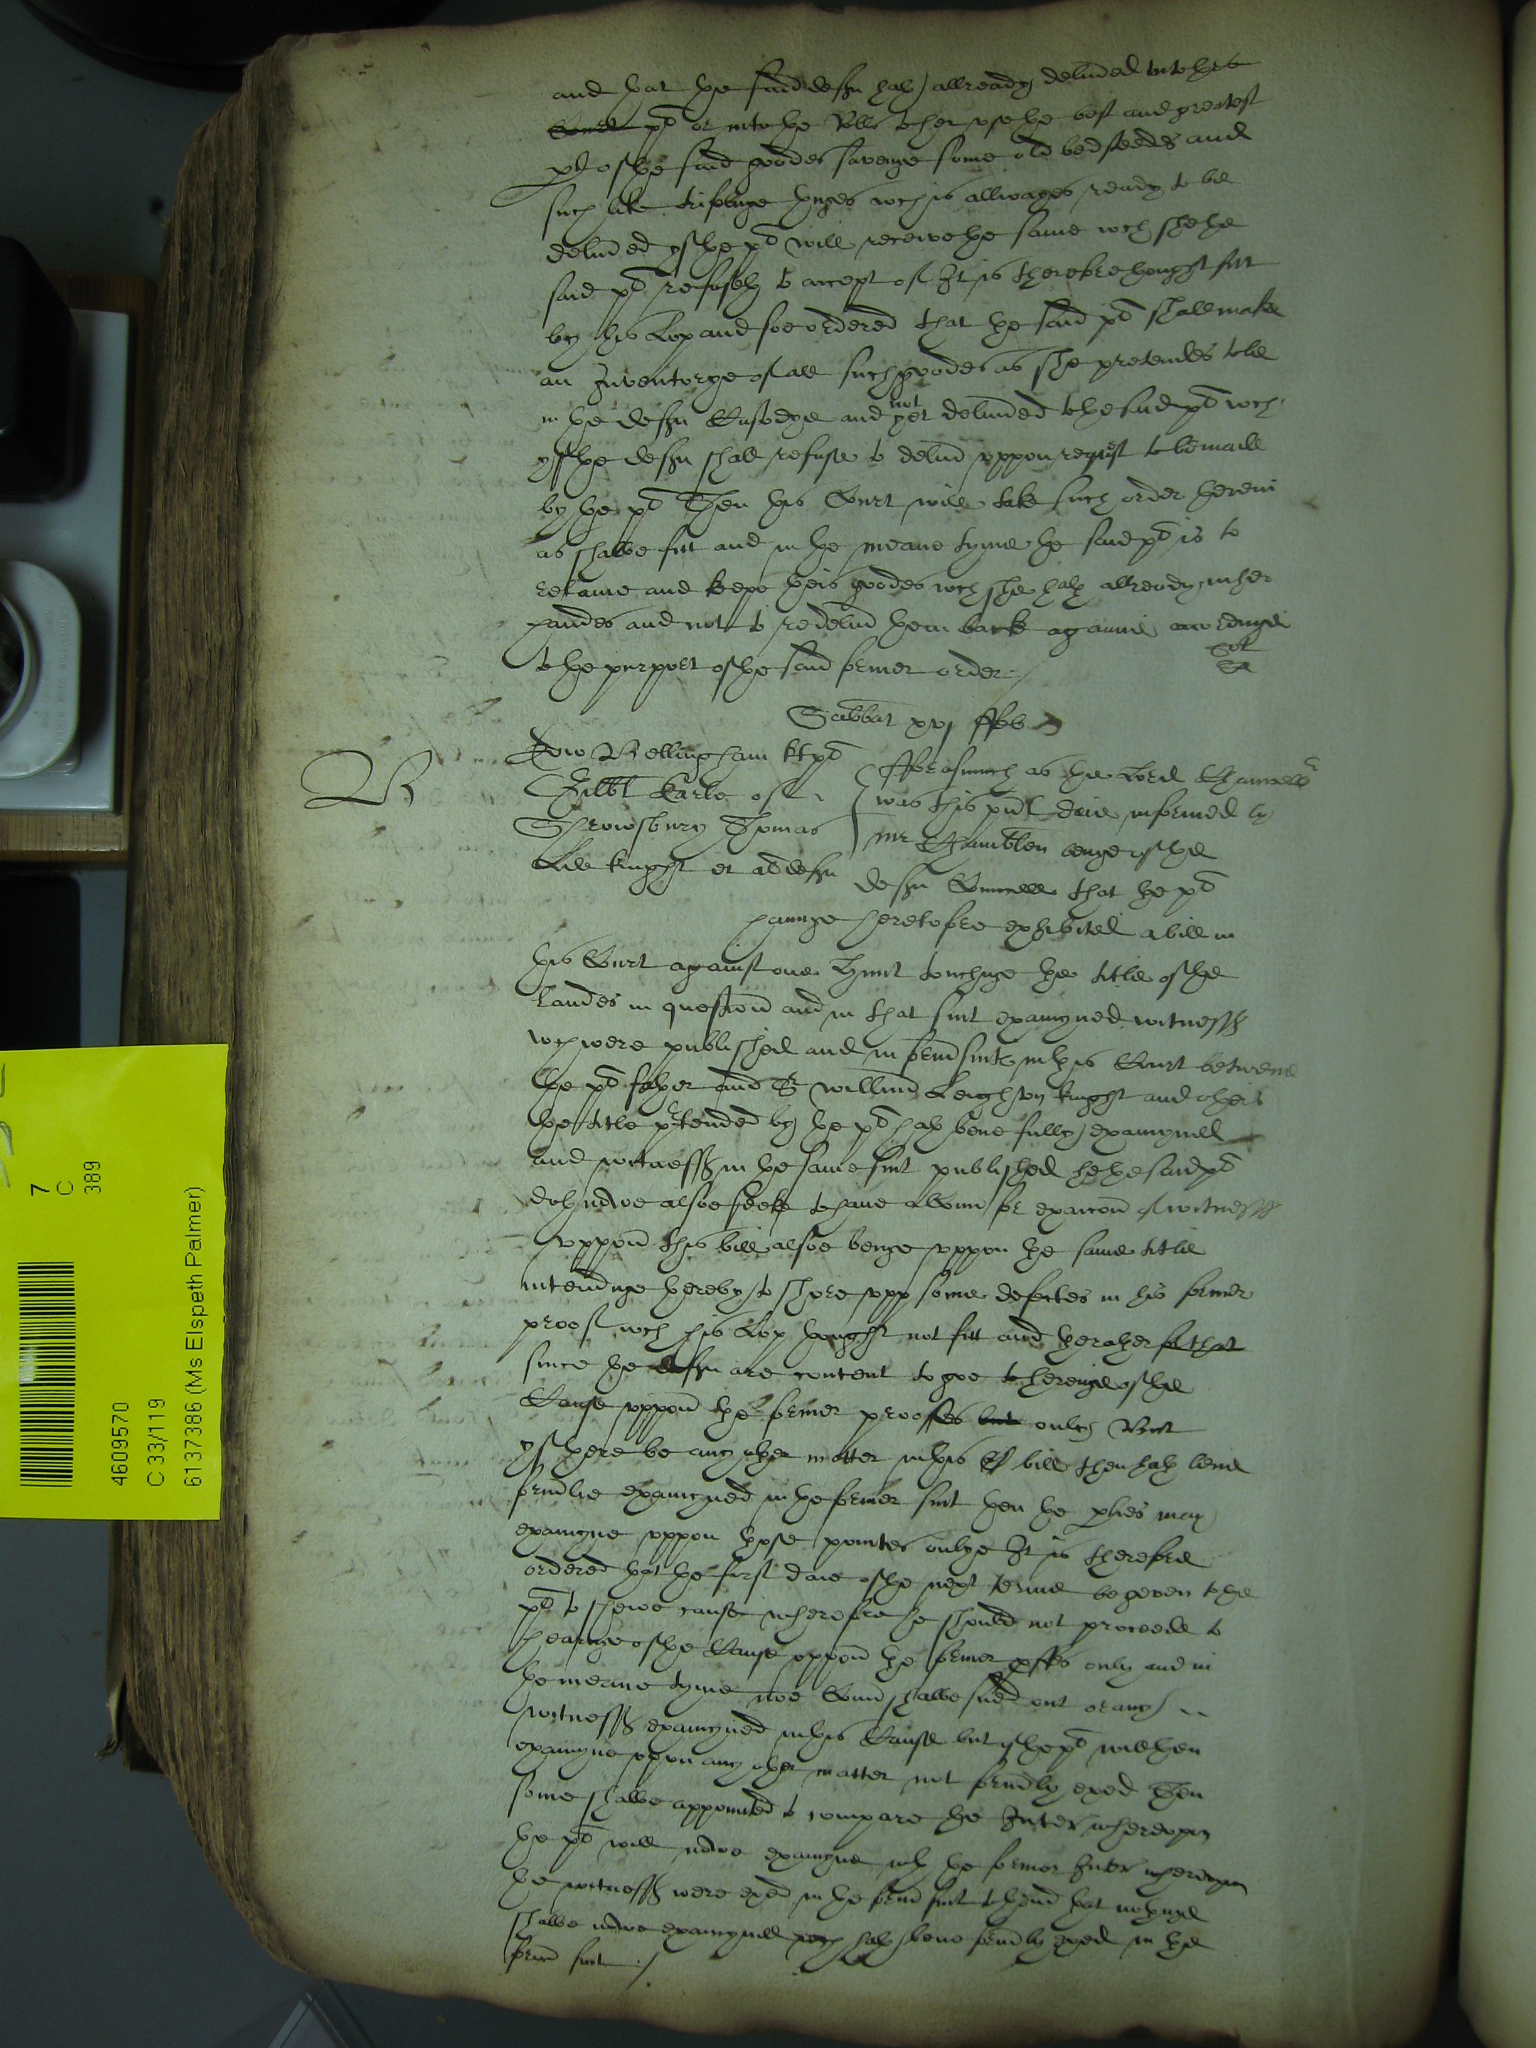 and that the said defᵗ hath allready deliůed unto the
Court plᵗ or into the use the best and greatest
pt of the said goodes savinge some old bedsteedes and
such like triflinge thinges wch is allwayes ready to be
deliůed yf the plᵗ will receive the same wch she the
said plᵗ refuseth to accept of It is therefore thought fitt
by his Lop and soe ordered that the said plᵗ shall make
an Inventorye of all such goodes as she pretendes to be
in the defᵗ Custodye and not yet deliůed to the said plᵗ wch
yf the defᵗ shall refuse to deliů uppon request to be made
by the plᵗ Then this Court will take such order therein
as shalbe fitt and in the meane tyme the said plᵗ is to
retaine and keepe theis goodes wch she hath allready in her
handes and not to redeliů them back againe accordinge
to the purport of the said former order
Sabbat xvj ffeb
Bellingham kt plᵗ
Gilbt Earle of
Shrowsbury Thomas
knight et al defᵗ
fforasmuch as the Lord Chauncellr
was this pnt daie informed by
mr Chamblen beinge of the
defᵗ Councell that the plᵗ
havinge heretofore exhibited a bill in
this Court against one touchinge the title of the
landes in question and in that suit examyned witnesses
wch were published and in former suite in this Court betweene
the plᵗ father and Sr Willm Leighton knight and others
the title ptended by the plᵗ hath bene fully examyned
and witnesses in the same suit published the said plᵗ
doth nowe alsoe seeke to have a Comn for exaicon of witnesses
uppon this bill alsoe beinge uppon the same title
intendinge thereby to shore upp some defectes in his former
proof wch his Lop thought not fitt and the rather for that
since the defᵗ are content to goe to heringe of the
Cause uppon the former prooffes but only But
yf there be any other matter in this bill then hath bene
formlie examyned in the former suit then the pties may
examyne uppon those pointes onlye It is therefore
ordered that the first daie of the next terme be geven to the
plᵗ to shewe cause wherefore he should not proceede to
hearinge of the Cause uppon the former pffes only and in
the meane tyme noe Comn shalbe sued out or any
witnesses examyned in this Cause but yf the plᵗ will then
examyne upon any other matter not formly exed Then
some shalbe appointed to compare the Inter whereupon
the plᵗ will nowe examyne wth the former Inter whereupon
the witnesses were exed in the form suit to thend that nothinge
shalbe nowe examyned wch hath bene formly exed in the
form suit
7
C
389
4609570
C 33/119
6137386 (Ms Elspeth Palmer)